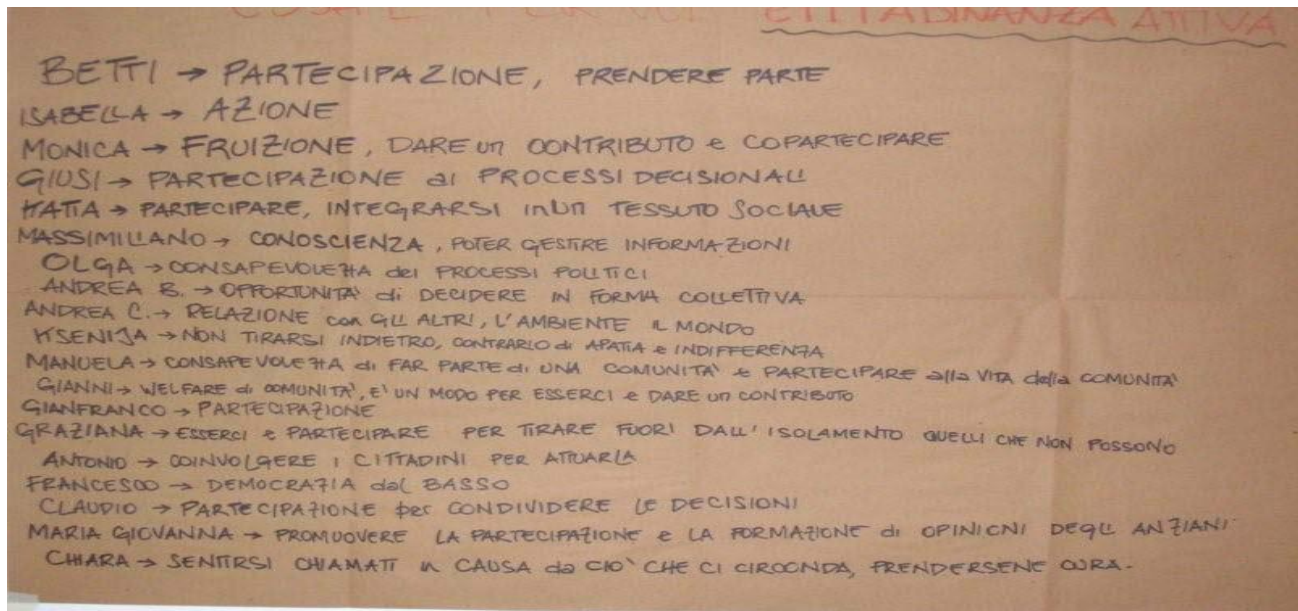 COSA E' PER VOI CITTADINANZA ATTIVA
BETTI → PARTECIPAZIONE, PRENDERE PARTE
ISABELLA → AZIONE
MONICA → FRUIZIONE, DARE un CONTRIBUTO e COPARTECIPARE
GIUSI → PARTECIPAZIONE ai PROCESSI DECISIONALI
KATIA → PARTECIPARE, INTEGRARSI in un TESSUTO SOCIALE
MASSIMILIANO → CONOSCIENZA, POTER GESTIRE INFORMAZIONI
OLGA → CONSAPEVOLEZZA dei PROCESSI POLITICI
ANDREA B. → OPPORTUNITA' di DECIDERE IN FORMA COLLETTIVA
ANDREA C. → RELAZIONE con GLI ALTRI, L'AMBIENTE IL MONDO
KSENIJA → NON TIRARSI INDIETRO, CONTRARIO di APATIA e INDIFFERENZA
MANUELA → CONSAPEVOLEZZA di FAR PARTE di UNA COMUNITA' e PARTECIPARE alla VITA della COMUNITA'
GIANNI → WELFARE di COMUNITA', E' UN MODO PER ESSERCI e DARE un CONTRIBUTO
GIANFRANCO → PARTECIPAZIONE
GRAZIANA → ESSERCI e PARTECIPARE PER TIRARE FUORI DALL'ISOLAMENTO QUELLI CHE NON POSSONO
ANTONIO → COINVOLGERE I CITTADINI PER ATTUARLA
FRANCESCO → DEMOCRAZIA dal BASSO
CLAUDIO → PARTECIPAZIONE per CONDIVIDERE LE DECISIONI
MARIA GIOVANNA → PROMUOVERE LA PARTECIPAZIONE e LA FORMAZIONE di OPINIONI DEGLI ANZIANI
CHIARA → SENTIRSI CHIAMATI in CAUSA da CIO' CHE CI CIRCONDA, PRENDERSENE CURA.